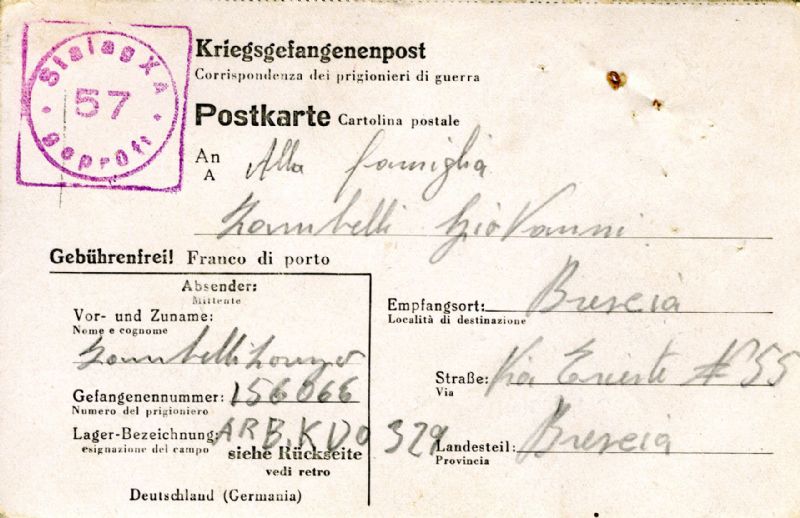 Stalag XA
57
geprüft
Kriegsgefangenenpost
Corrispondenza dei prigionieri di guerra
Postkarte Cartolina postale
An Alla famiglia
A
Zambelli Giovanni
Gebührenfrei! Franco di porto
Absender:
Mittente
Vor- und Zuname:
Nome e cognome
Zambelli
Gefangenennummer: 156066
Numero del prigioniero
Lager-Bezeichnung: ARB.KDO 329
esignazione del campo
siehe Rückseite
vedi retro
Deutschland (Germania)
Empfangsort: Brescia
Località di destinazione
Straße: Via 55
Via
Landesteil: Brescia
Provincia